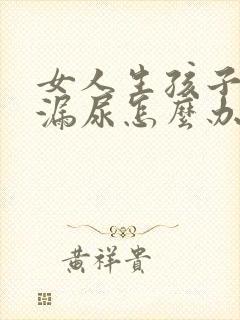 女人生孩子
漏尿怎麼办
黄祥貴